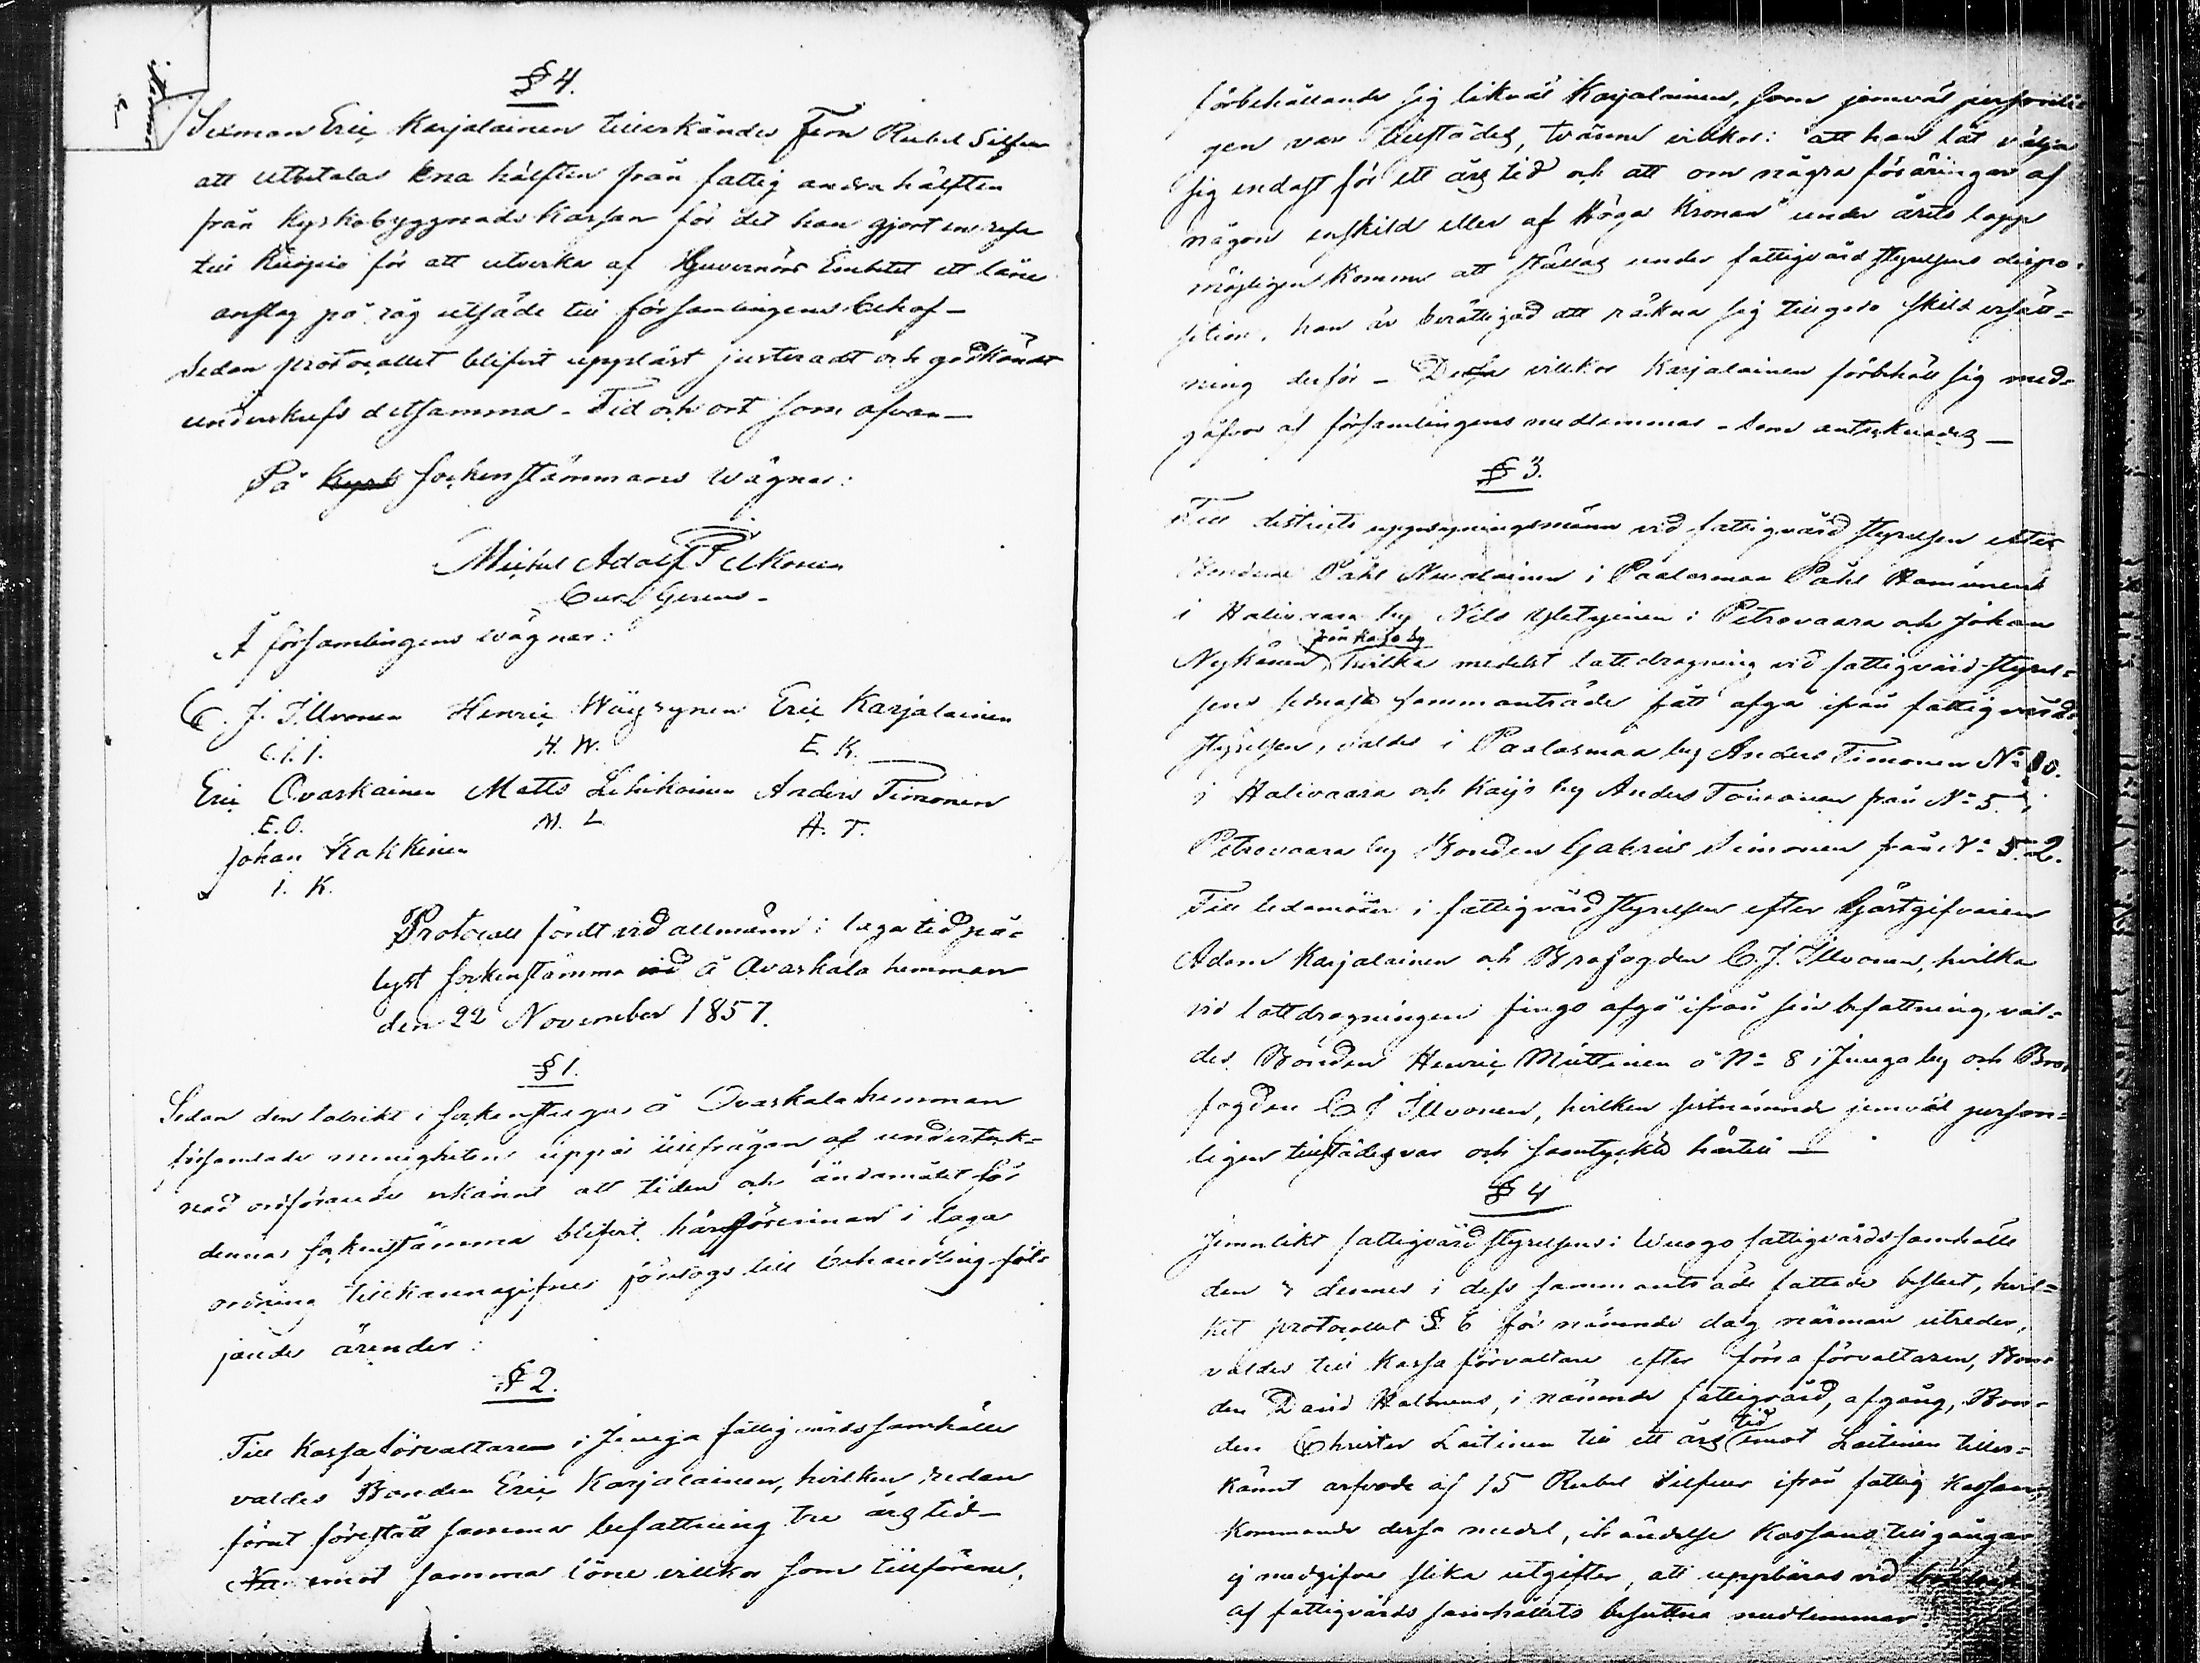 § 4.
Sexman Eric Karjalainen tillerkändes Fem Rubel Silfver
att utbetalas Ena hälften från fattig andra hälften
från Kyrkobyggnads Kassan för det han gjort en resa
till Kuopio för att utverka af Guvernörs Embetet ett låne
anslag på råg utsäde till församlingens behof –
Sedan protocollet blifvit uppläst justeradt och godkändt
underskrefs detsamma – Tid och ort som ofvan –
På Kyrk Sockenstämmans wägnar:
Michel Adolf Pelkonen
Å församlingens wägnar:
C. J. Illvonen Henric Wäyrynen Eric Karjalainen
C. J. I. H. W. E. K.
Eric Ovaskainen Matts Lehikoinen Anders Timonen
E. O. M. L. A. T.
Johan Kakkinen
I. K.
Protocoll fördt vid allmänn i laga tid på-
lyst Sockenstämma vid å Ovaskala hemman
den 22 November 1857.
§ 1.
Sedan den talrikt i Sockenstugan å Ovaskala hemman
församlade menigheten uppå tillfrågan af underteck-
nad ordförande erkännt att tiden och ändamålet för
denna sockenstämma blifvit härförinnan i laga
ordning tillkännagifne företogs till behandling föl-
jande ärender:
§ 2.
Till Kassaförvaltaren i Juuga fattigvårdssamhälle
valdes Bonden Eric Karjalainen, hvilken redan
förut förestått samma befattning tre års tid –
emot samma löne villkor som tillförene,
förbehållande sig likväl Karjalainen, som jemväl personli-
gen var tillstädes, tvänne villkor: att han lät välja
sig endast för ett års tid och att om några föräringar af
någon enskild eller af Höga Kronan under årets lopp
möjligen komme att ställas under fattigvårdstyrelsens dispo-
sition, han är berättigad att räkna sig tillgodo skild ersätt-
ning derför – Dessa villkor Karjalainen förbehöll sig med-
gåfvos af församlingens medlemmar – som antecknades –
§ 3.
Till districts uppsyningsmänn vid fattigvårdstyrelsen efter
Bonden Påhl Nevalainen i Paalasmaa Påhl Hämünen
i Halivaara by Nils Hyletyinen i Petrovaara och Johan
från Kajo by
Nykänen hvilka medelst lottdragning vid fattigvårdstyrel-
sens senaste sammanträde fått afgå ifrån fattigvårds
styrelsen, valdes i Paalasmaa by Anders Timonen N:o 10.
i Halivaara och Kaijo by Anders Toivonen från N:o 5. i
Petrovaara by Bonden Gabriel Simonen från N:o 2.
Till ledamöter i fattigvårdstyrelsen efter Gästgifvaren
Adam Karjalainen och Brofogden C. J. Illvonen, hvilka
vid lottdragningen fingo afgå ifrån sin befattning, val-
des Bonden Henric Müttinen å N:o 8 i Juuga by och Bro-
fogden C J Illvonen, hvilken sistnämnde jemväl person-
ligen tillstädes var och samtyckte härtill –
§ 4
Jemnlikt fattigvårdstyrelsens i Wuogo fattigvårdssamhälle
den dennes i dess sammanträde fattade beslut, hvil-
ket protocollet § 6 för nämnde dag närmare utreder,
valdes till Kassa förvaltare efter förra förvaltaren, Bon-
den David Halonens, i nämnde fattigvård, afgång, Bon-
den Christer Laitinen till ett års tid emot Laitinen tiller-
kännt arfvode af 15 Rubel Silfver ifrån fattig Kassan,
kommande dessa medel, ihändelse Kassans tillgångar
ej medgifva slika utgifter, att uppbäras vid
af fattigvårds samhällets besuttna medlemmar